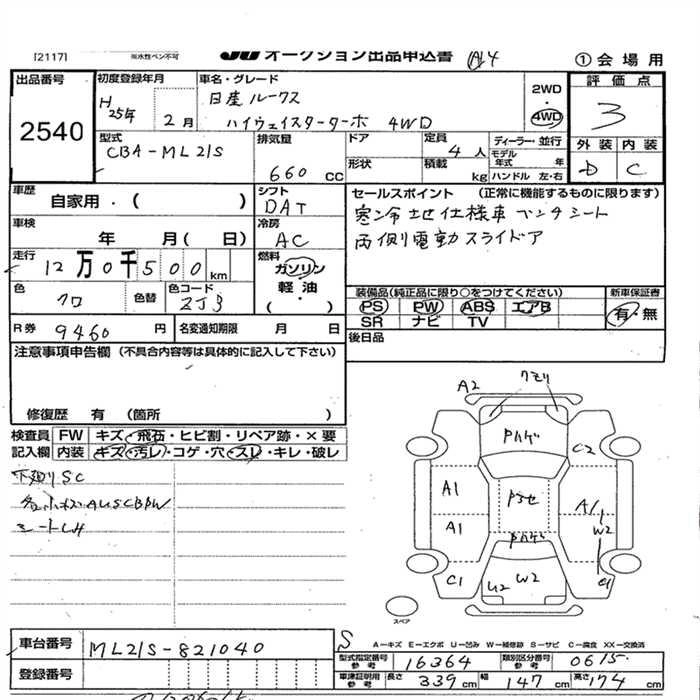 [2117]
※水性ペン不可
JU オークション出品申込書
A4
① 会場用
出品番号
2540
初度登録年月
H 25年 2月
車名・グレード
日産 ルークス
ハイウェイスターターボ 4WD
2WD
・
4WD
評価点
3
外装 内装
D C
型式
CBA-ML21S
排気量
660 cc
ドア
形状
定員
4 人
積載
kg
ディーラー・並行
モデル年式 年
ハンドル 左・右
車歴
自家用・( )
シフト
DAT
セールスポイント (正常に機能するものに限ります)
寒冷地仕様車 ベンチシート
両側電動スライドア
車検
年 月( 日)
冷房
AC
走行
12万0千500km
燃料
ガソリン
軽油
( ・ )
色
クロ
色替
色コード
ZJ3
装備品(純正品に限り○をつけてください)
PS PW ABS エアB
SR ナビ TV
新車保証書
有・無
R券 9460 円
名変通知期限 月 日
後日品
注意事項申告欄 (不具合内容等は具体的に記入して下さい)
修復歴 有 (箇所 )
検査員記入欄
FW キズ・飛石・ヒビ割・リペア跡・×要
内装 キズ・汚レ・コゲ・穴・スレ・キレ・破レ
下廻りSC
シートLH
A2
クモリ
Pハゲ
C2
A1
A1
A1
W2
Pハゲ
C1
U2 W2
C1
スペア
車台番号
ML21S-821040
登録番号
S
A-キズ E-エクボ U-凹み W-補修跡 S-サビ C-腐食 XX-交換済
型式指定番号 参考 16364
類別区分番号 参考 0615
車庫証明用 参考 長さ 339cm 幅 147cm 高さ 174cm